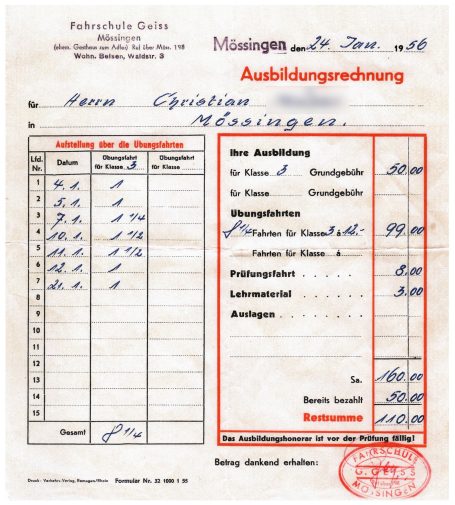 Fahrschule Geiss
Mössingen
(ehem. Gasthaus zum Adler) Ruf über Möss. 198
Wohn. Belsen, Waldstr. 3
Mössingen den 24. Jan. 1956
Ausbildungsrechnung
für Herrn Christian
in Mössingen.
Aufstellung über die Übungsfahrten
Lfd. Nr. Datum Übungsfahrt für Klasse 3 Übungsfahrt für Klasse
1 4.1. 1
2 5.1. 1
3 7.1. 1 1/4
4 10.1. 1 1/2
5 11.1. 1 1/2
6 12.1. 1
7 21.1. 1
8
9
10
11
12
13
14
15
Gesamt 8 1/4
Ihre Ausbildung
für Klasse 3 Grundgebühr 50.00
für Klasse Grundgebühr
Übungsfahrten
8 1/4 Fahrten für Klasse 3 á 12.- 99.00
Fahrten für Klasse á
Prüfungsfahrt . . . . . 8.00
Lehrmaterial . . . . 3.00
Auslagen . . . . .
Sa. 160.00
Bereits bezahlt 50.00
Restsumme 110.00
Das Ausbildungshonorar ist vor der Prüfung fällig!
Betrag dankend erhalten:
FAHRSCHULE
G. GEISS
MÖSSINGEN
Druck: Verkehrs-Verlag, Remagen/Rhein Formular Nr. 32 1000 1 55